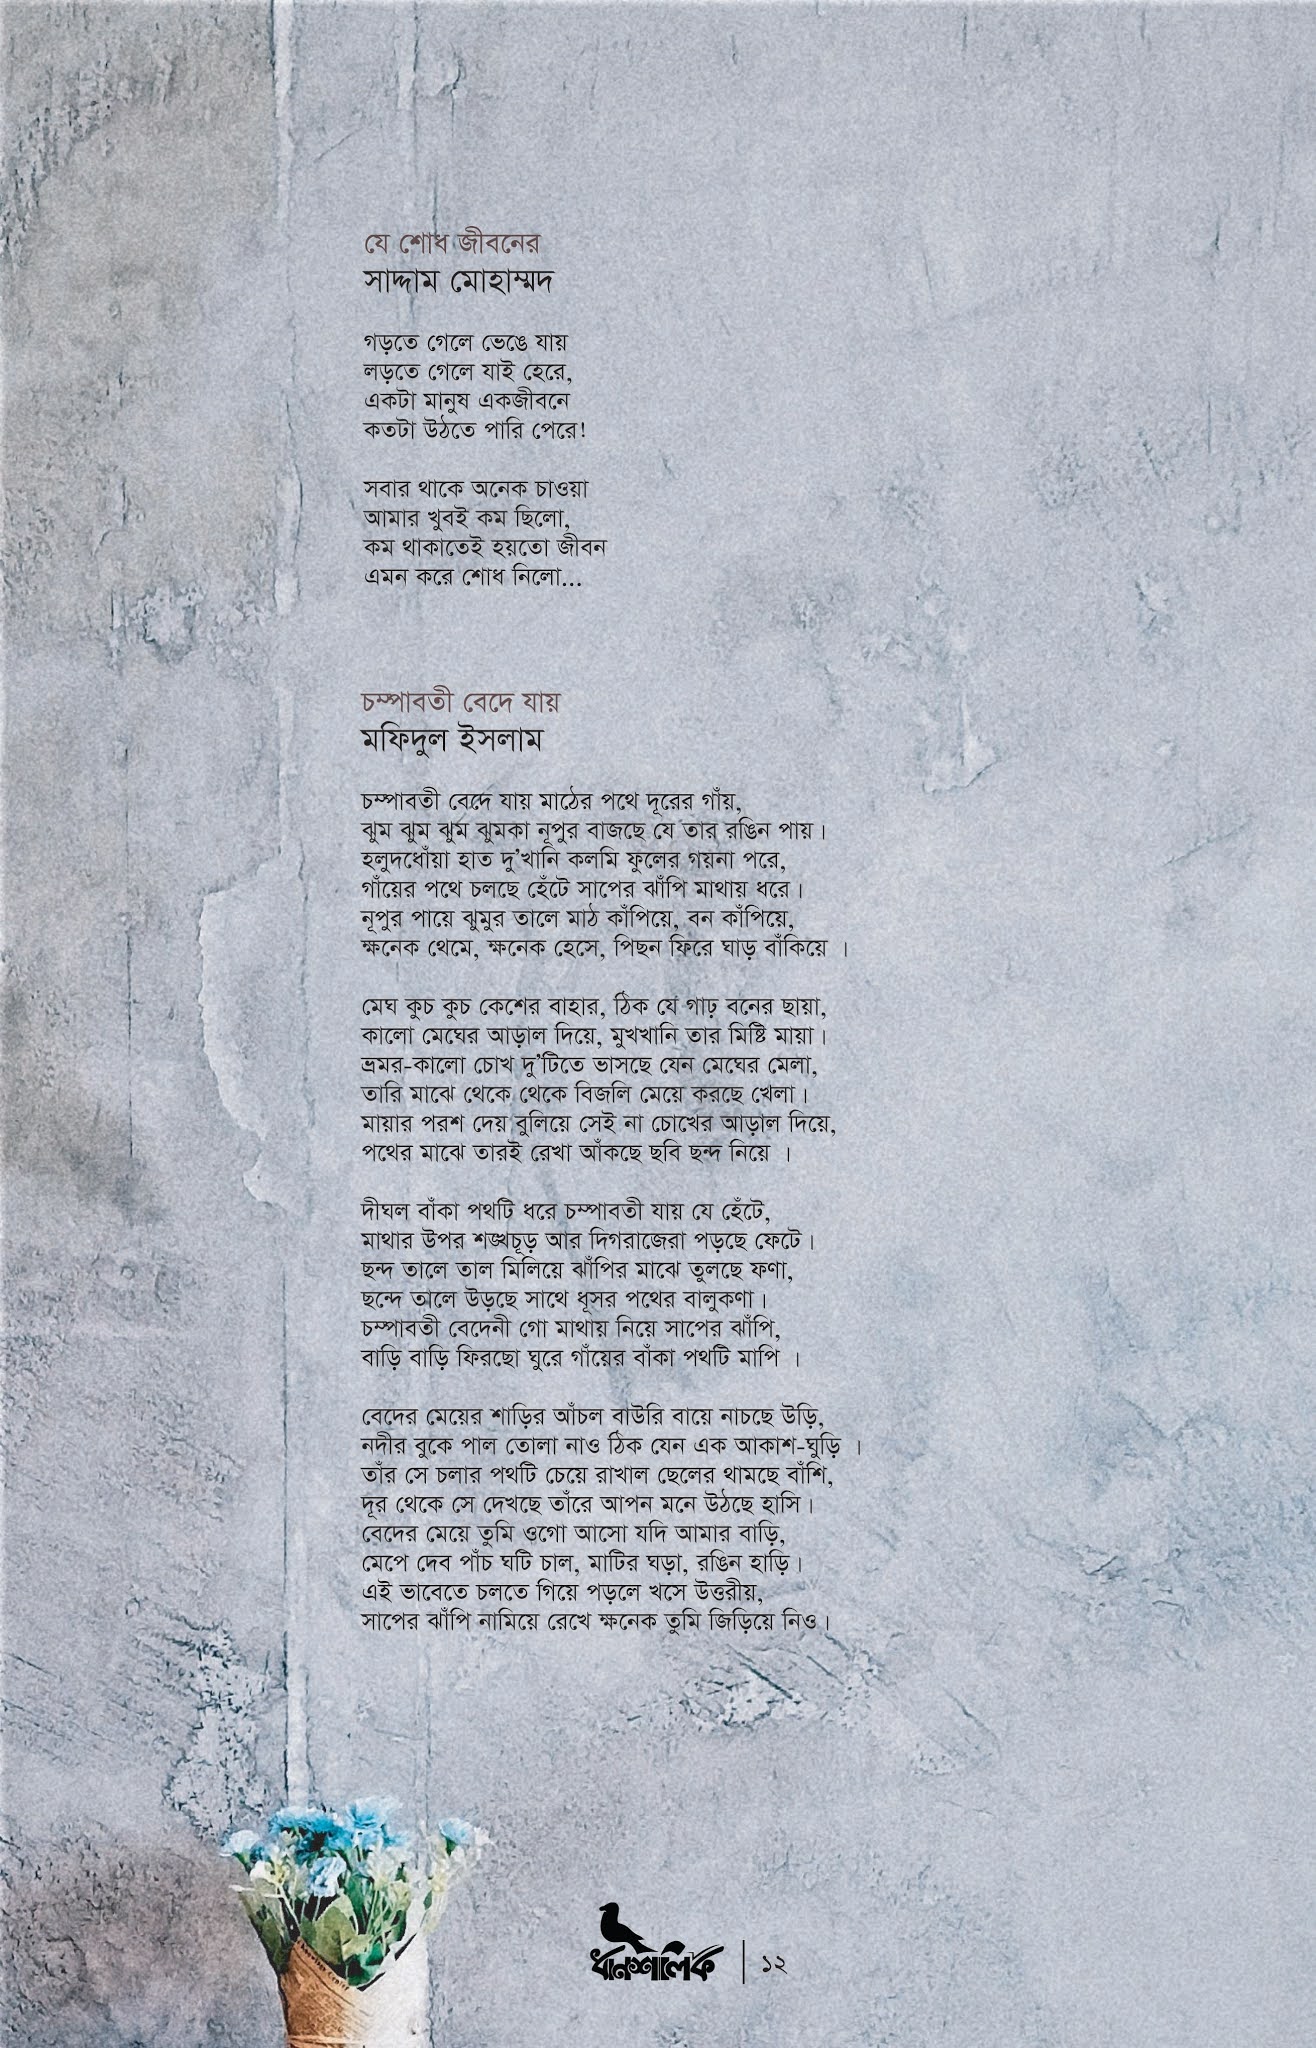 যে শোধ জীবনের
সাদ্দাম মোহাম্মদ
গড়তে গেলে ভেঙে যায়
লড়তে গেলে যাই হেরে,
একটা মানুষ একজীবনে
কতটা উঠতে পারি পেরে!
সবার থাকে অনেক চাওয়া
আমার খুবই কম ছিলো,
কম থাকাতেই হয়তো জীবন
এমন করে শোধ নিলো...
চম্পাবতী বেদে যায়
মফিদুল ইসলাম
চম্পাবতী বেদে যায় মাঠের পথে দূরের গাঁয়,
ঝুম ঝুম ঝুম ঝুমকা নূপুর বাজছে যে তার রঙিন পায়।
হলুদধোঁয়া হাত দু'খানি কলমি ফুলের গয়না পরে,
গাঁয়ের পথে চলছে হেঁটে সাপের ঝাঁপি মাথায় ধরে।
নূপুর পায়ে ঝুমুর তালে মাঠ কাঁপিয়ে, বন কাঁপিয়ে,
ক্ষনেক থেমে, ক্ষনেক হেসে, পিছন ফিরে ঘাড় বাঁকিয়ে ।
মেঘ কুচ কুচ কেশের বাহার, ঠিক যে গাঢ় বনের ছায়া,
কালো মেঘের আড়াল দিয়ে, মুখখানি তার মিষ্টি মায়া।
ভ্রমর-কালো চোখ দু'টিতে ভাসছে যেন মেঘের মেলা,
তারি মাঝে থেকে থেকে বিজলি মেয়ে করছে খেলা।
মায়ার পরশ দেয় বুলিয়ে সেই না চোখের আড়াল দিয়ে,
পথের মাঝে তারই রেখা আঁকছে ছবি ছন্দ নিয়ে ।
দীঘল বাঁকা পথটি ধরে চম্পাবতী যায় যে হেঁটে,
মাথার উপর শঙ্খচূড় আর দিগরাজেরা পড়ছে ফেটে।
ছন্দ তালে তাল মিলিয়ে ঝাঁপির মাঝে তুলছে ফণা,
ছন্দে তালে উড়ছে সাথে ধূসর পথের বালুকণা।
চম্পাবতী বেদেনী গো মাথায় নিয়ে সাপের ঝাঁপি,
বাড়ি বাড়ি ফিরছো ঘুরে গাঁয়ের বাঁকা পথটি মাপি ।
বেদের মেয়ের শাড়ির আঁচল বাউরি বায়ে নাচছে উড়ি,
নদীর বুকে পাল তোলা নাও ঠিক যেন এক আকাশ-ঘুড়ি ।
তাঁর সে চলার পথটি চেয়ে রাখাল ছেলের থামছে বাঁশি,
দূর থেকে সে দেখছে তাঁরে আপন মনে উঠছে হাসি।
বেদের মেয়ে তুমি ওগো আসো যদি আমার বাড়ি,
মেপে দেব পাঁচ ঘটি চাল, মাটির ঘড়া, রঙিন হাড়ি।
এই ভাবেতে চলতে গিয়ে পড়লে খসে উত্তরীয়,
সাপের ঝাঁপি নামিয়ে রেখে ক্ষনেক তুমি জিড়িয়ে নিও।
ধানশালিক | ১২